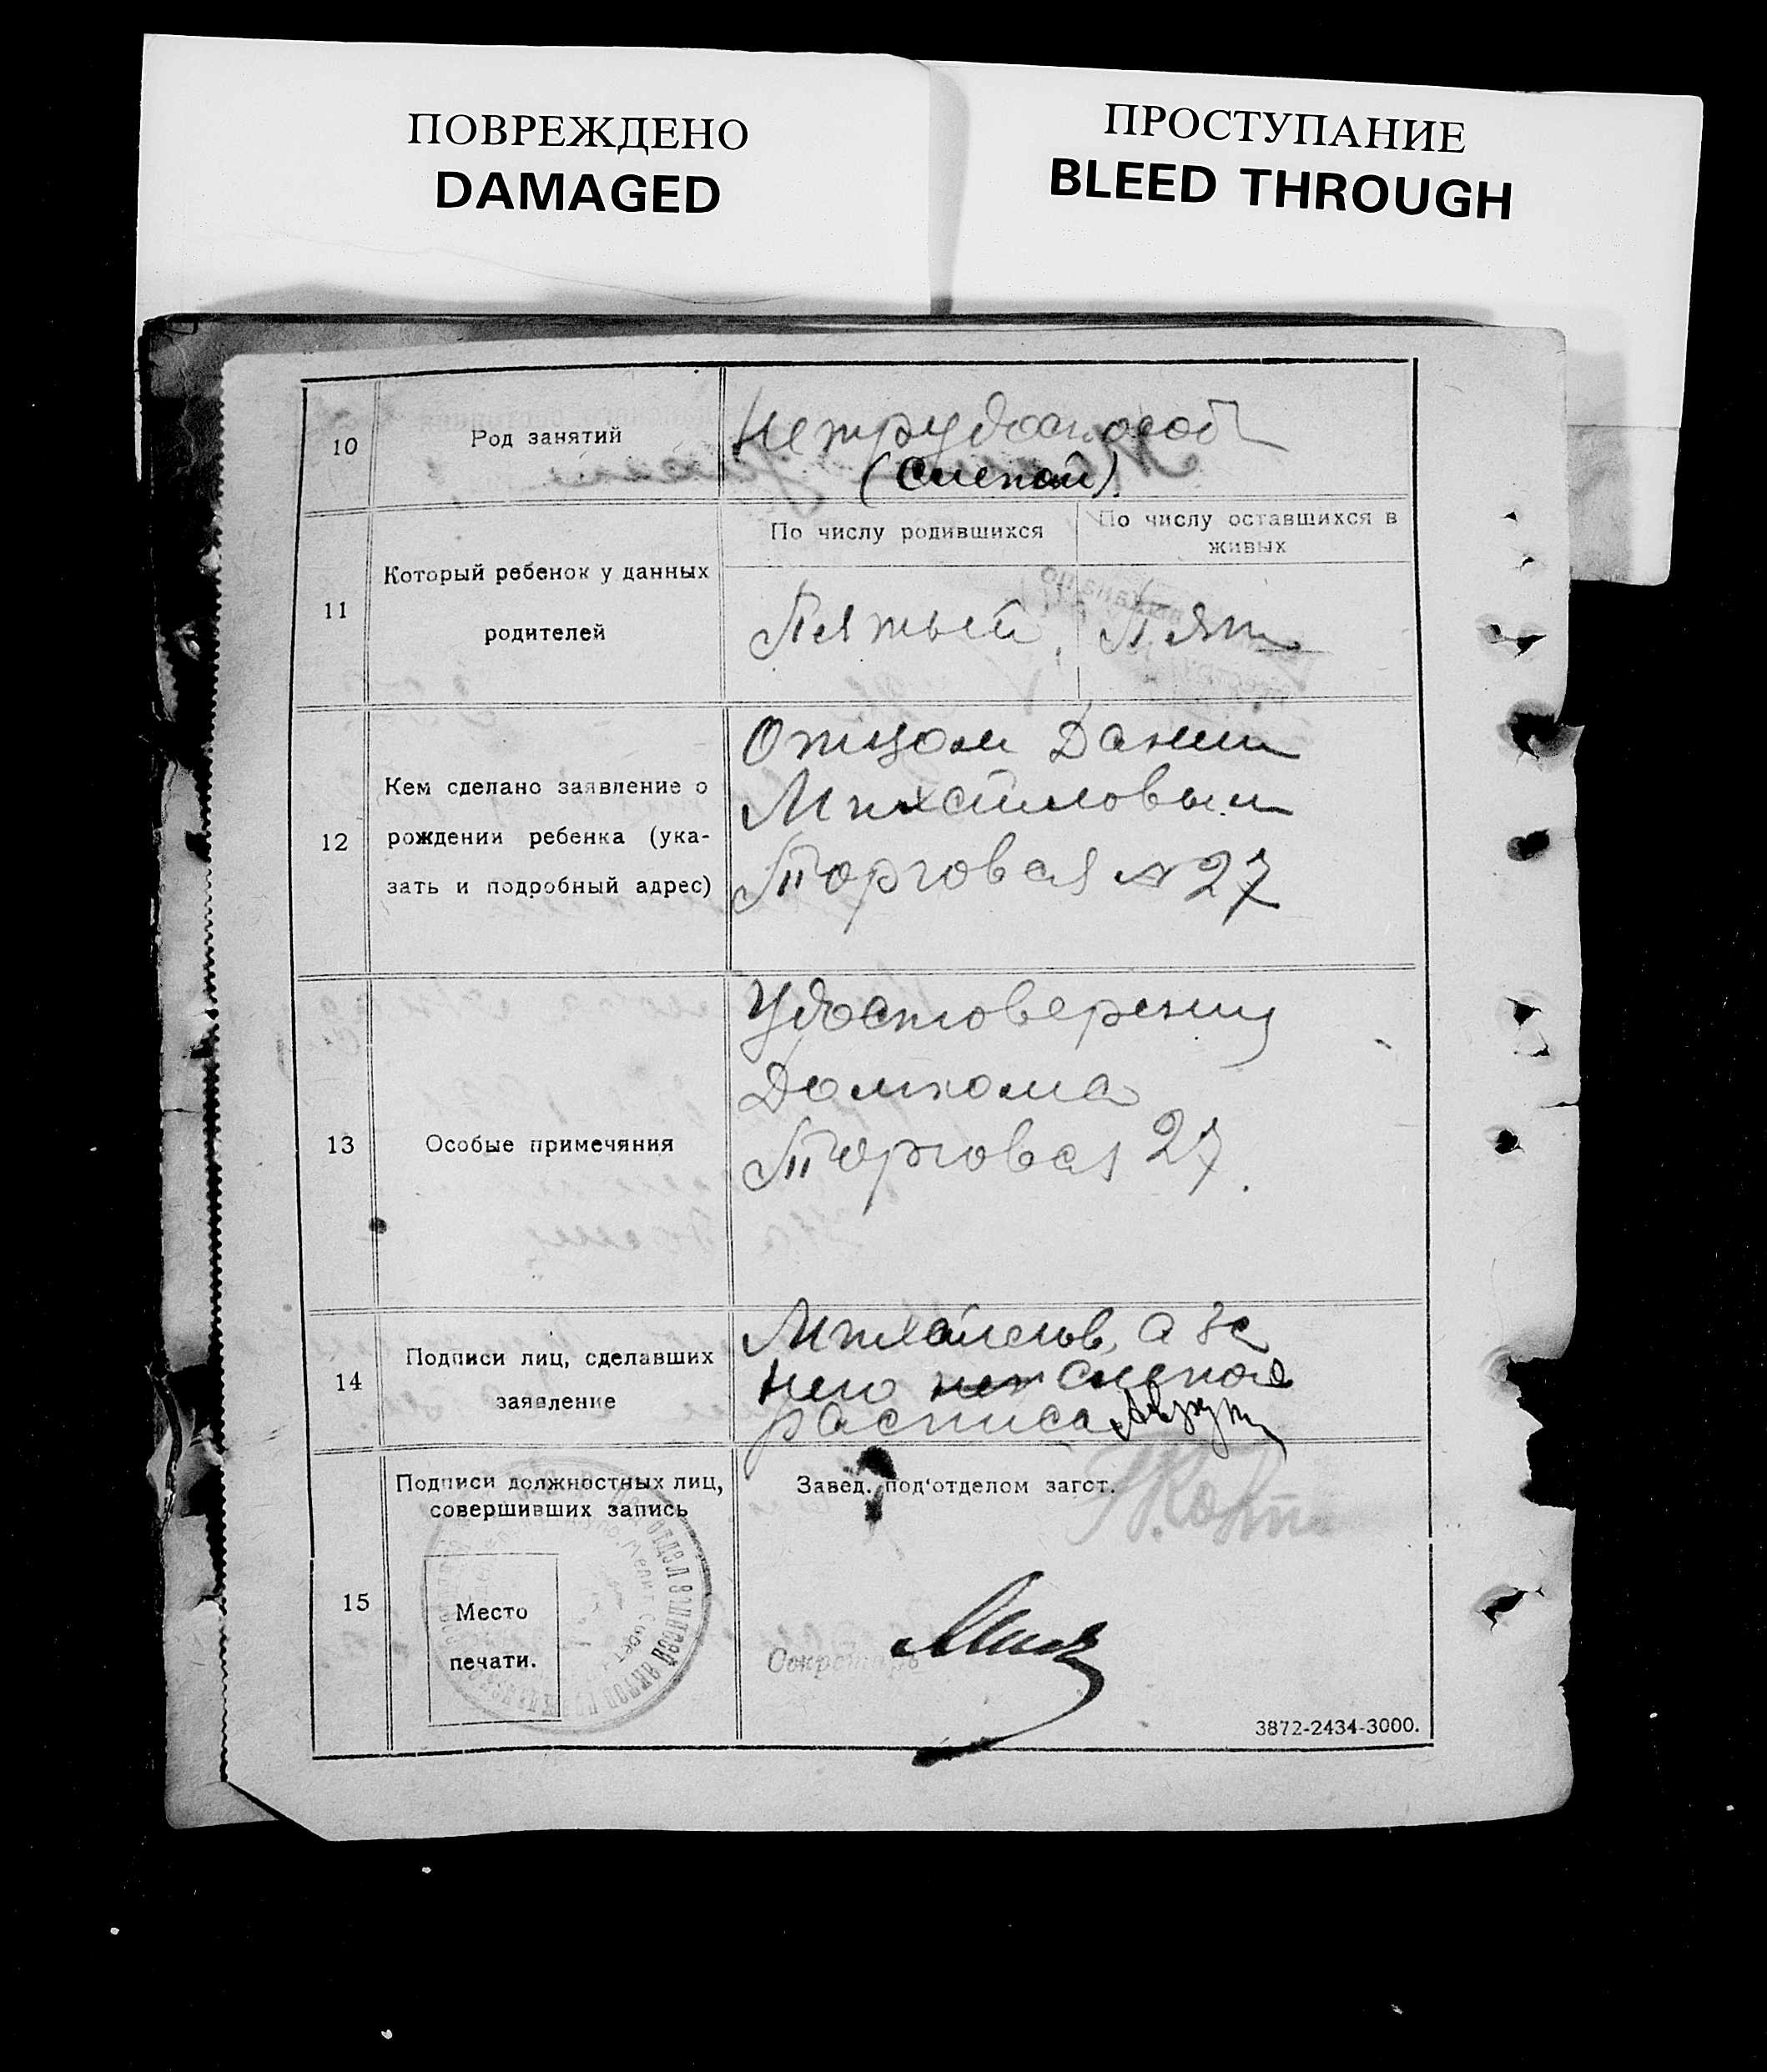 ПОВРЕЖДЕНО
DAMAGED
ПРОСТУПАНИЕ
BLEED THROUGH
10
Род занятий
Нетрудоспособ
(Слепой)
11
Который ребенок у данных
родителей
По числу родившихся
Пятый
По числу оставшихся в
живых
Пят
12
Кем сделано заявление о
рождении ребенка (ука-
зать и подробный адрес)
Отцом Данил
Михайловым
Торговая №27
13
Особые примечяния
Удостоверения
Домкома
Торговая 27.
14
Подписи лиц, сделавших
заявление
Михайлов, а за
него слепого
расписа
15
Подписи должностных лиц,
совершивших запись
Место
печати.
Завед. под'отделом загст.
Секретарь
3872-2434-3000.